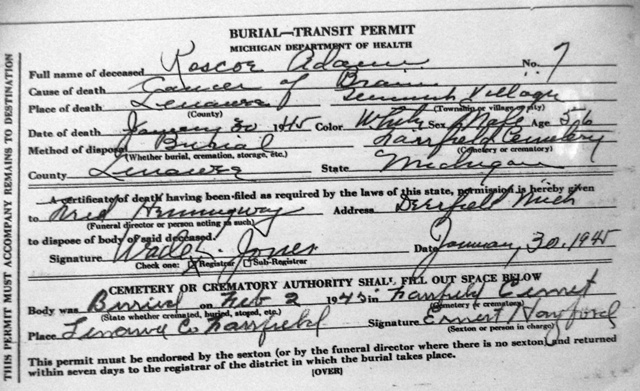 BURIAL—TRANSIT PERMIT
MICHIGAN DEPARTMENT OF HEALTH
Full name of deceased Roscoe Adams No. 7
Cause of death Cancer of Brain
Place of death Lenawee Village
(County) (Township or village or city)
Date of death January 30 1945 Color White Sex Male Age 56
Method of disposal Burial Fairfield Cemetery
(Whether burial, cremation, storage, etc.) (Cemetery or crematory)
County Lenawee State Michigan
A certificate of death having been filed as required by the laws of this state, permission is hereby given
to Fred Hemingway Address Deerfield Mich
(Funeral director or person acting as such)
to dispose of body of said deceased.
Signature Jones Date January, 30, 1945
Check one: Registrar Sub-Registrar
CEMETERY OR CREMATORY AUTHORITY SHALL FILL OUT SPACE BELOW
Body was Buried on Feb 2 1945 in Fairfield Cemet
(State whether cremated, buried, stored, etc.) (Cemetery or crematory)
Place Lenawe C. Fairfield Signature Ernest Hayford
(Sexton or person in charge)
This permit must be endorsed by the sexton (or by the funeral director where there is no sexton) and returned
within seven days to the registrar of the district in which the burial takes place.
(OVER)
THIS PERMIT MUST ACCOMPANY REMAINS TO DESTINATION